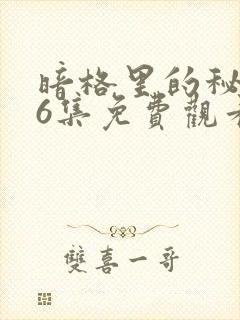 暗格里的秘
6集免費觀看
雙喜一哥